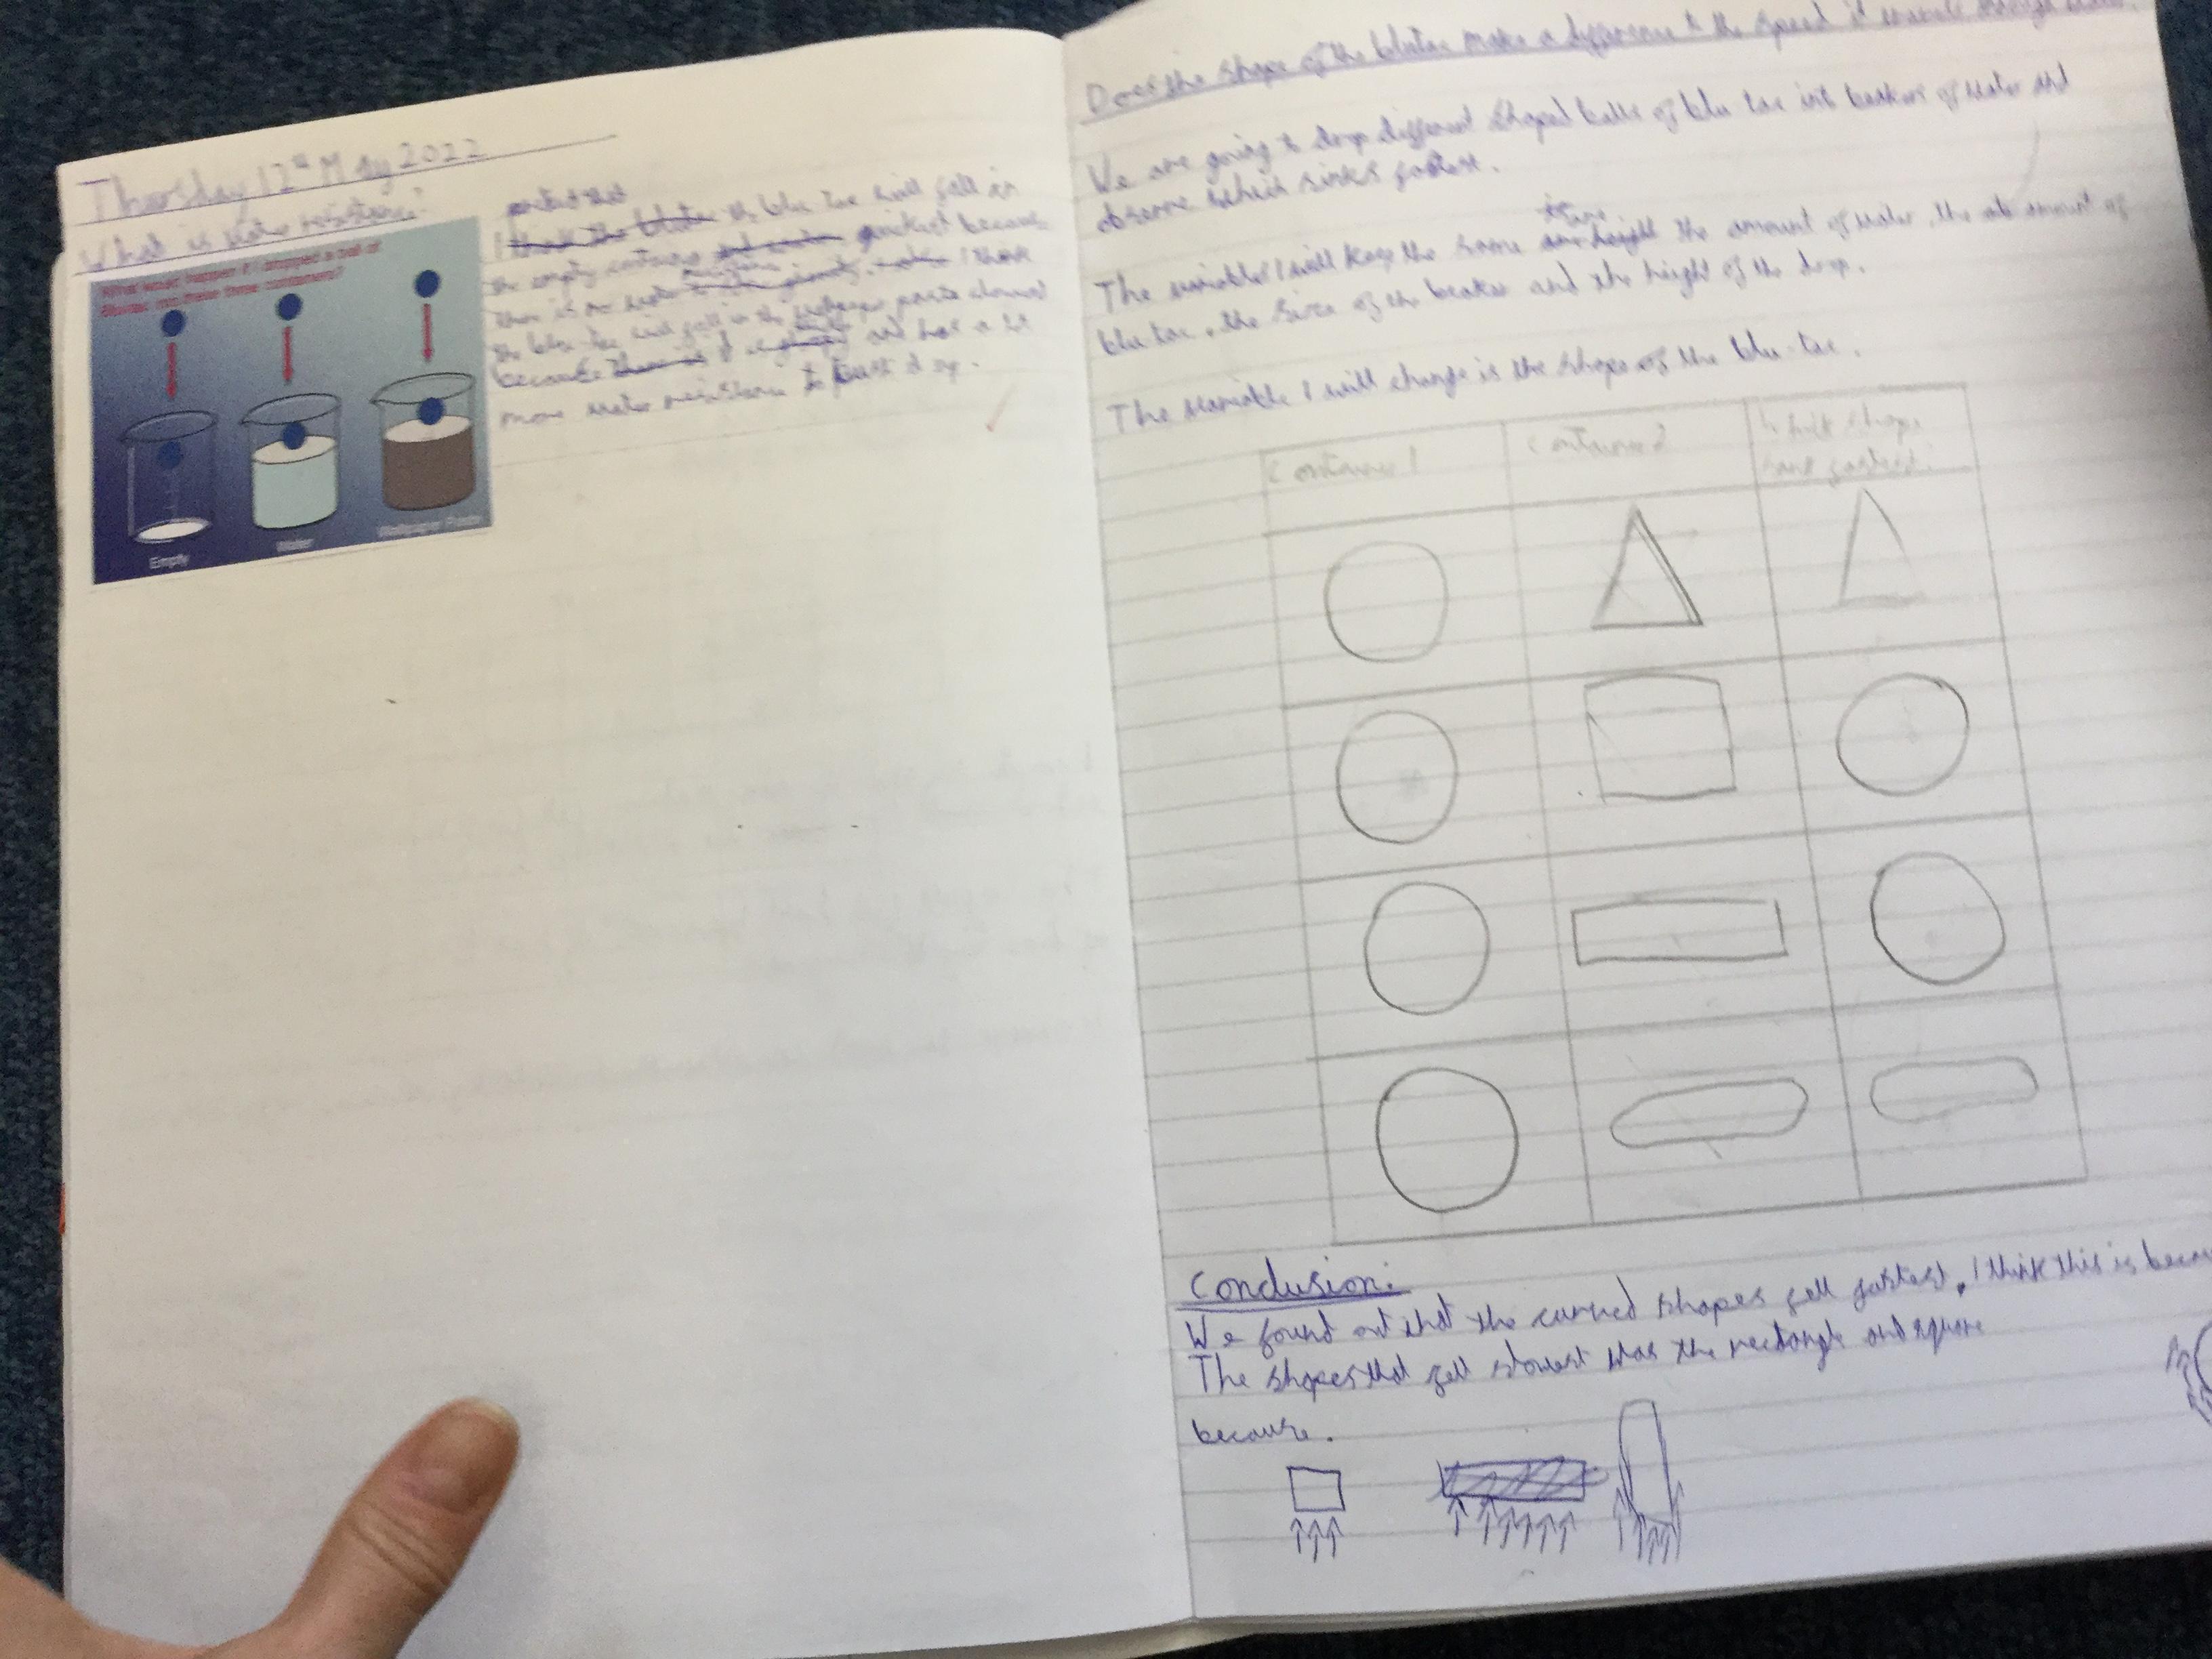 Thursday 12th May 2022
What is water resistance?
What would happen if I dropped a ball of
Blutac into these three containers?
Empty
Water
Wallpaper Paste
predict that
I think the blutac the blu tac will fall in
the empty container quickest because
there is no water resistance. I think
the blu-tac will fall in the wallpaper paste slowest
because there is it is and has a lot
more water resistance to push it up.
Does the shape of the blutac make a difference to the speed it travels through water.
We are going to drop different shaped balls of blu tac into beakers of water and
observe which sinks fastest.
The variables I will keep the same are height the amount of water, the amount of
blu tac, the size of the beaker and the height of the drop.
The variable I will change is the shape of the blu-tac.
Container 1
Container 2
Which shape
sank fastest.
Conclusion:
We found out that the curved shapes fell fastest. I think this is becau
The shapes that fell slowest was the rectangle and square
because.